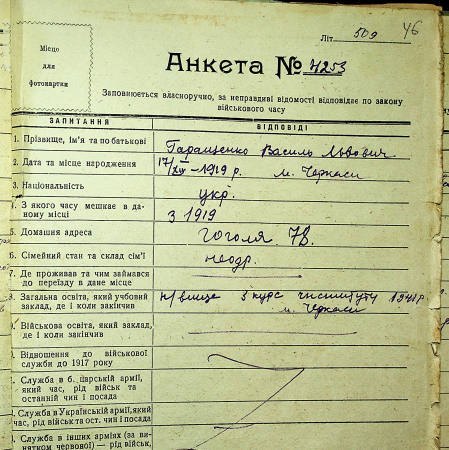 Літ 509 46
Місце
для
фотокартки
Анкета № 4253
Заповнюється власноручно, за неправдиві відомості відповідає по закону
військового часу
ЗАПИТАННЯ ВІДПОВІДІ
1. Прізвище, ім'я та по батькові Гаращенко Василь Львович
2. Дата та місце народження 17/ХІІ – 1919 р. м. Черкаси
3. Національність укр.
4. З якого часу мешкає в да-
ному місці З 1919
5. Домашня адреса Гоголя 78.
6. Сімейний стан та склад сім'ї неодр.
7. Де проживав та чим займався
до переїзду в дане місце
8. Загальна освіта, який учбовий
заклад, де і коли закінчив н/вище 3 курс інституту 1941 р
м. Черкаси
9. Військова освіта, який заклад,
де і коли закінчив
Відношення до військової
служби до 1917 року
Служба в б. царській армії,
який час, рід військ та
останній чин і посада
Служба в Українській армії, який
час, рід військ та ост. чин і посада
Служба в інших арміях (за ви-
нятком червоної) — рід військ,